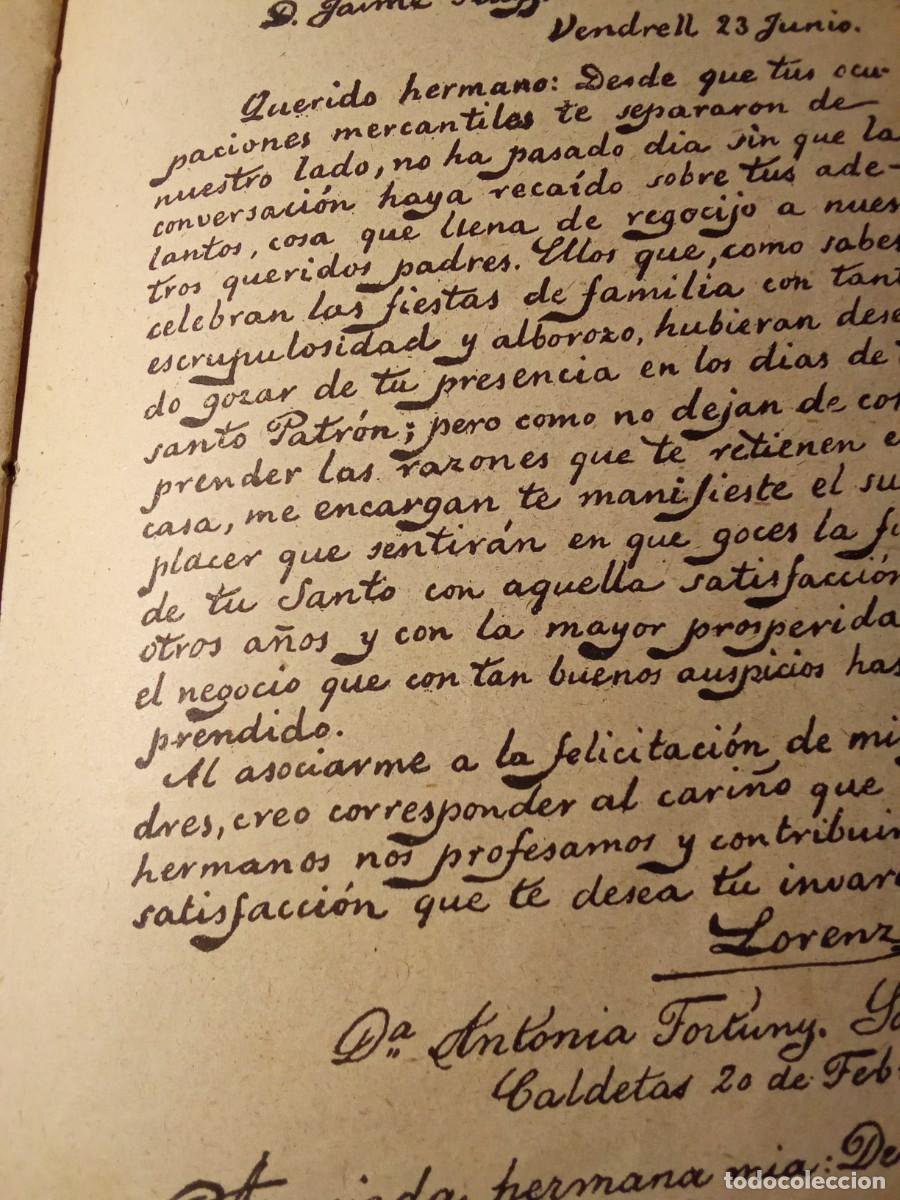 D. Jaime
Vendrell 23 Junio.
Querido hermano: Desde que tus ocu-
paciones mercantiles te separaron de
nuestro lado, no ha pasado dia sin que la
conversación haya recaído sobre tus ade-
lantos, cosa que llena de regocijo a nues
tros queridos padres. Ellos que, como sabes
celebran las fiestas de familia con tant
escrupulosidad y alborozo, hubieran dese
do gozar de tu presencia en los dias de
santo Patrón; pero como no dejan de co
prender las razones que te retienen e
casa, me encargan te manifieste el su
placer que sentirán en que goces la fi
de tu Santo con aquella satisfacción
otros años y con la mayor prosperida
el negocio que con tan buenos auspicios has
prendido.
Al asociarme a la felicitación de mi
dres, creo corresponder al cariño que
hermanos nos profesamos y contribuir
satisfacción que te desea tu invar
Lorenz
Dª Antonia Fortuny.
Caldetas 20 de Feb
hermana mia: De
todocoleccion